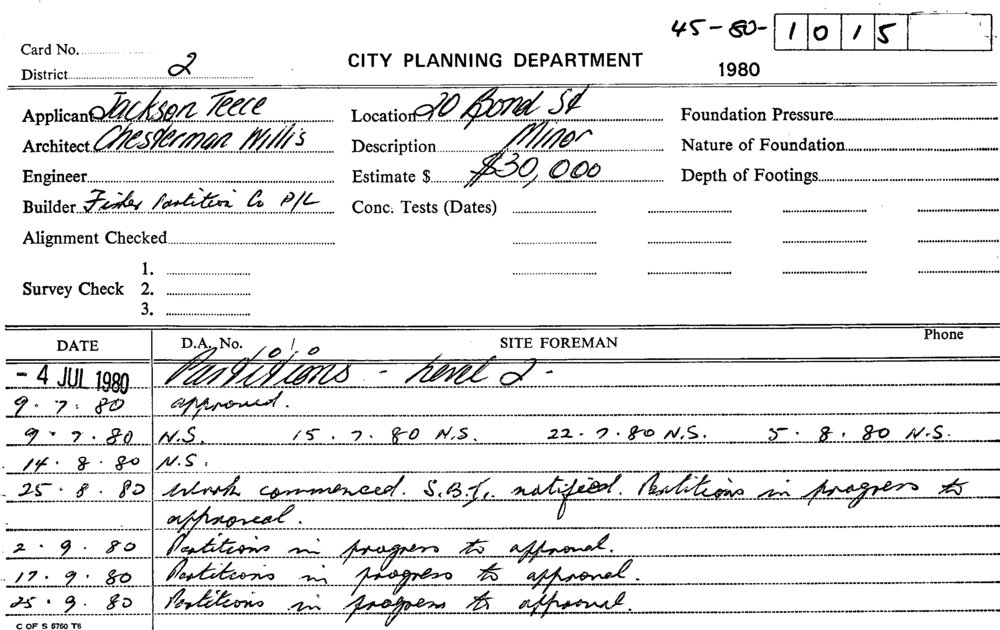 45-80-1015
Card No.
District 2
CITY PLANNING DEPARTMENT
1980
Applicant Jackson Teece
Location 20 Bond St
Foundation Pressure
Architect Chesterman Willis
Description Minor
Nature of Foundation
Engineer
Estimate $ $30,000
Depth of Footings
Builder Fisher Partition Co P/L
Conc. Tests (Dates)
Alignment Checked
1.
Survey Check 2.
3.
DATE D.A. No. 1010 SITE FOREMAN Phone
- 4 JUL 1980 Partitions - Level 2 -
9.7.80 approved.
9.7.80 N.S. 15.7.80 N.S. 22.7.80 N.S. 5.8.80 N.S.
14.8.80 N.S.
25.8.80 Work commenced. S.B.I. notified. Partitions in progress to
approval.
2.9.80 Partitions in progress to approval.
17.9.80 Partitions in progress to approval.
25.9.80 Partitions in progress to approval.
C OF S 6760 T6